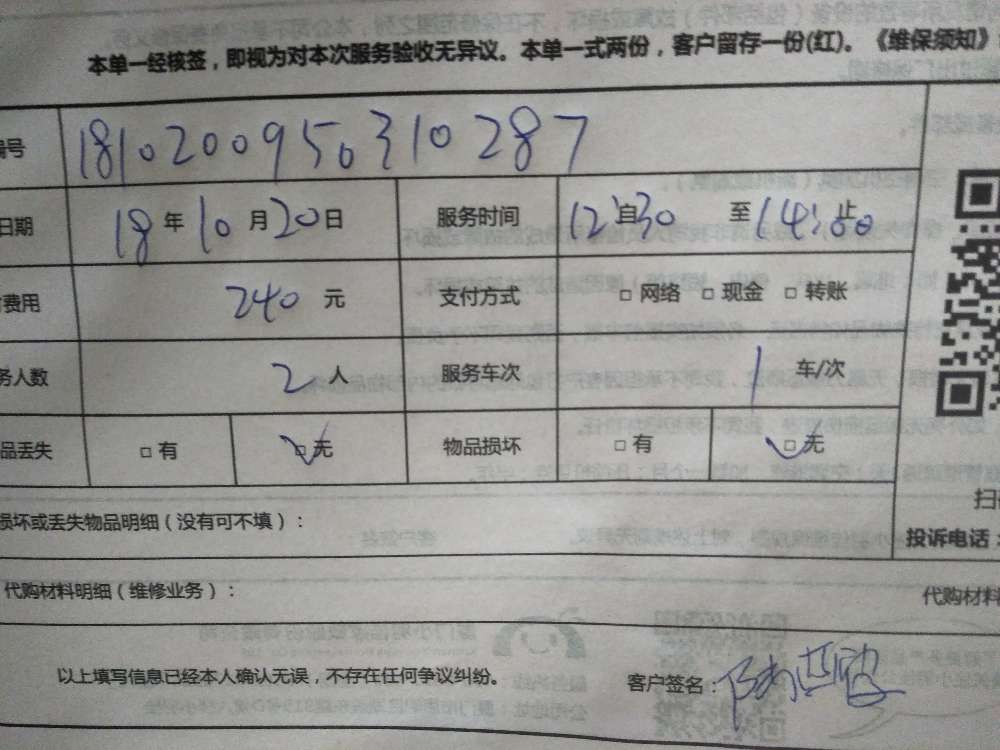 本单一经核签，即视为对本次服务验收无异议。本单一式两份，客户留存一份(红)。《维保须知》
编号 1810200950310287
日期 18年10月20日 服务时间 12:自30 至14:00止
费用 240元 支付方式 □网络 □现金 □转账
务人数 2人 服务车次 1车/次
品丢失 □有 □无 物品损坏 □有 □无
损坏或丢失物品明细（没有可不填）：
扫
投诉电话：
代购材料明细（维修业务）： 代购材料
以上填写信息已经本人确认无误，不存在任何争议纠纷。 客户签名：